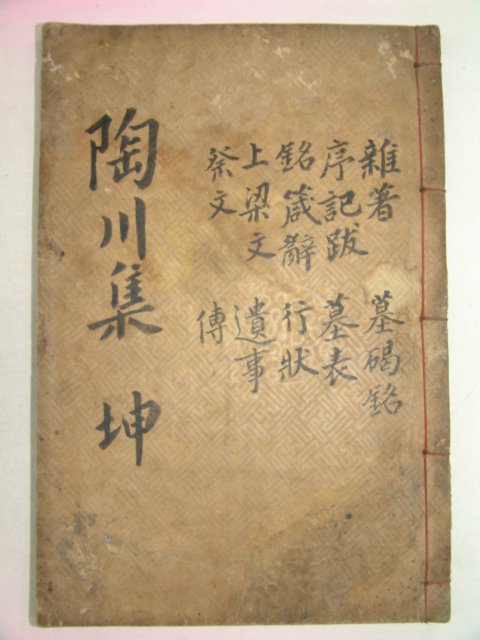 雜著
序記跋
銘箴辭
上梁文
祭文
墓碣銘
墓表
行狀
遺事
傳
陶川集 坤